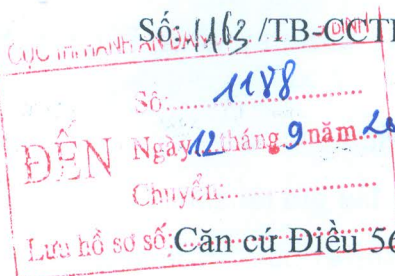 Số: 1163 /TB-CCT
CỤC THI HÀNH ÁN DÂN
Số: 1188
ĐẾN
Ngày 12 tháng 9 năm 20
Chuyển:
Lưu hồ sơ số: Căn cứ Điều 56